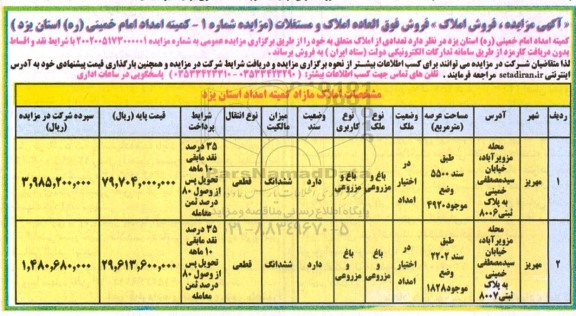 « آگهی مزایده ، فروش املاک » فروش فوق العاده املاک و مستغلات (مزایده شماره 1 - کمیته امداد امام خمینی (ره) استان یزد )
کمیته امداد امام خمینی (ره) استان یزد در نظر دارد تعدادی از املاک متعلق به خود را از طریق برگزاری مزایده عمومی به شماره مزایده ۲۰۰۲۰۰۵۱۷۳۰۰۰۰۰۱ با شرایط نقد و اقساط
بدون دریافت کارمزد از طریق سامانه تدارکات الکترونیکی دولت (ستاد ایران ) به فروش برساند .
لذا متقاضیان شرکت در مزایده می توانند برای کسب اطلاعات بیشتر از نحوه برگزاری مزایده و دریافت شرایط شرکت در مزایده و همچنین بارگذاری قیمت پیشنهادی خود به آدرس
اینترنتی setadiran.ir مراجعه فرمایند . تلفن های تماس جهت کسب اطلاعات بیشتر: ( ۰۳۵۳۳۴۲۲۲۹۰ - ۰۳۵۳۳۴۲۳۳۱۰ ) پاسخگویی در ساعات اداری
مشخصات املاک مازاد کمیته امداد استان یزد
ردیف شهر آدرس مساحت عرصه (مترمربع) وضعیت ملک نوع ملک نوع کاربری وضعیت سند میزان مالکیت نوع انتقال شرایط پرداخت قیمت پایه (ریال) سپرده شرکت در مزایده (ریال)
۱ مهریز محله مزویرآباد، خیابان سیدمصطفی خمینی به پلاک ثبتی ۸۰۰۶ طبق سند ۵۵۰۰ وضع موجود ۴۹۲۰ در اختیار امداد باغ و مزروعی باغ و مزروعی دارد ششدانگ قطعی ۳۵ درصد نقد مابقی ۱۰ ماهه تحویل پس از وصول ۸۰ درصد ثمن معامله ۷۹,۷۰۴,۰۰۰,۰۰۰ ۳,۹۸۵,۲۰۰,۰۰۰
۲ مهریز محله مزویرآباد، خیابان سیدمصطفی خمینی به پلاک ثبتی ۸۰۰۷ طبق سند ۲۲۰۲ وضع موجود ۱۸۲۸ در اختیار امداد باغ و مزروعی باغ و مزروعی دارد ششدانگ قطعی ۳۵ درصد نقد مابقی ۱۰ ماهه تحویل پس از وصول ۸۰ درصد ثمن معامله ۲۹,۶۱۳,۶۰۰,۰۰۰ ۱,۴۸۰,۶۸۰,۰۰۰
پایگاه اطلاع رسانی مناقصه و مزایده
۰۲۱-۸۸۳۴۹۶۷۰-۵